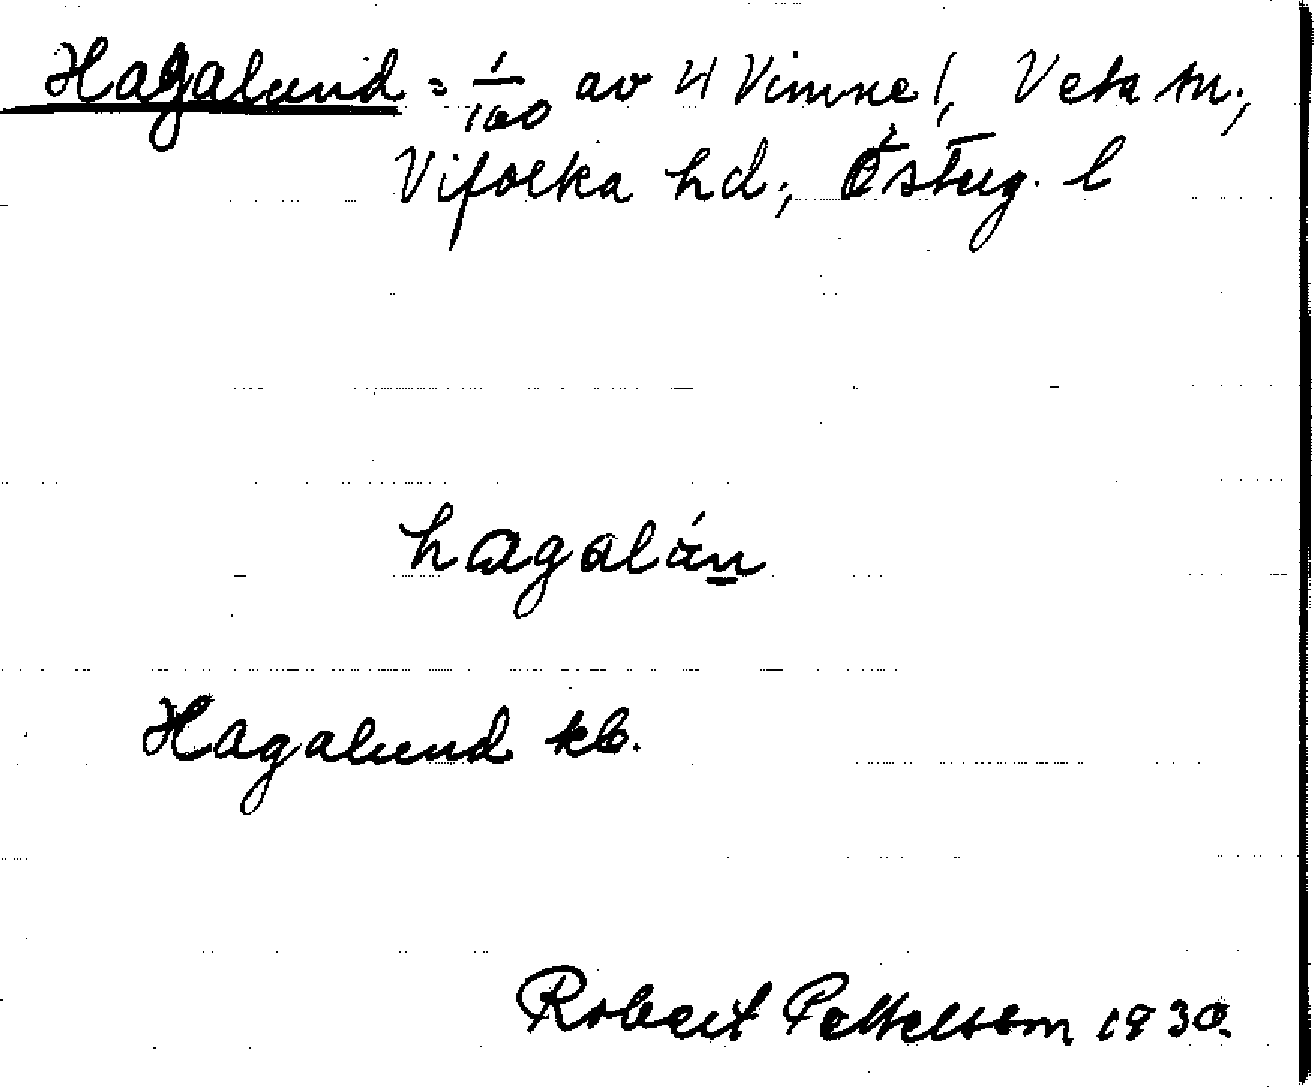 Hagalund = 1/160 av 4 Vimne 1, Veta sn.,
Vifolka hd., Östug. l
hagalún
Hagalund kb.
Robert Pettelsom 1930.